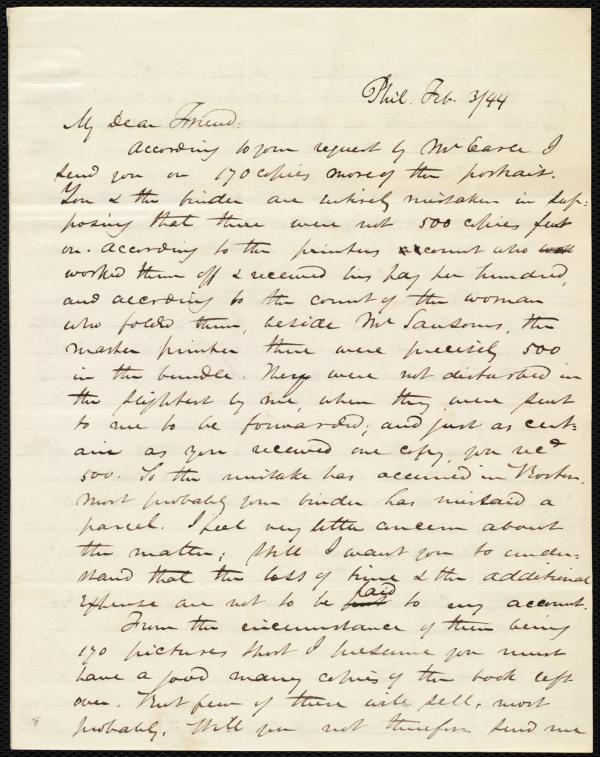 Phil. Feb. 3/44
My Dear Friend:
According to your request by Mr Earle I
send you on 170 copies more of the portrait.
You & the binder are entirely mistaken in sup-
posing that there were not 500 copies sent
on. According to the printers account who
worked them off & received his pay per hundred,
and accrding to the count of the woman
who folded them, beside Mr Sansoms, the
master printer there were precisely 500
in the bundle. They were not disturbed in
the slightest by me, when they were sent
to me to be forwarded; and just as cert-
ain as you received one copy, you recd
500. So the mistake has occurred in Boston.
Most probably your binder has mislaid a
parcel. I feel very little concern about
the matter; still I want you to under-
stand that the loss of time & the additional
expense are not to be laid to my account.
From the circumstance of their being
170 pictures short I presume you must
have a good many copies of the book left
over. But few of these will sell, most
probably. Will you not therefore send me
8